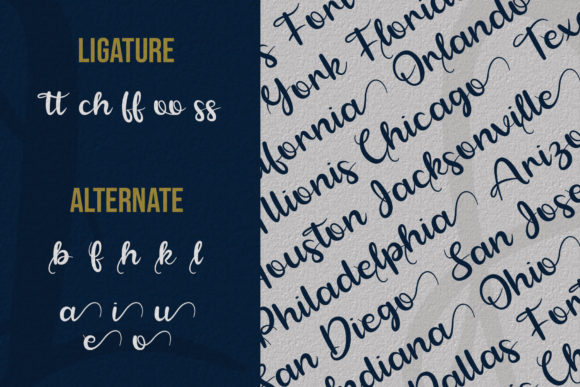 LIGATURE
tt ch ff oo ss
ALTERNATE
b f h k l
a i u
e o
s Font
York Florida
ifornia Orlando
Illionis Chicago Tex
Houston Jacksonville
Philadelphia Arizo
San Diego San Jose
Indiana Ohio
Dallas Font